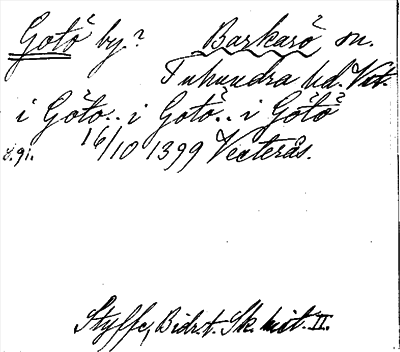 Gotö by? Barkarö sn.
Tuhundra hd. Vst.
i Göto.. i Gotö.. i Götö
s. 91. 16/10 1399 Vesterås.
Styffe, Bidr. t. Sk. hist. II.